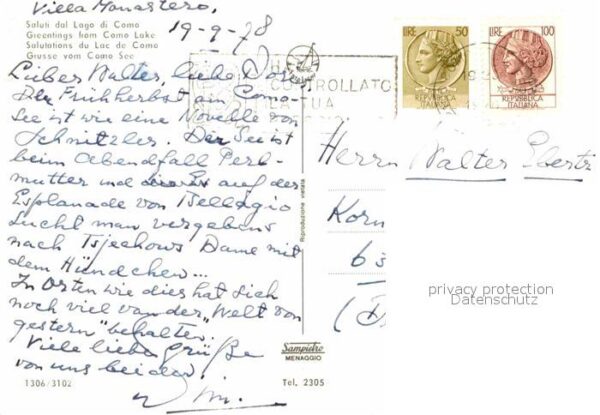 Villa Monastero,
19-9-78
Saluti dal Lago di Como
Greetings from Como Lake
Salutations du Lac de Come
Grüsse vom Como See
Lieber Walter, liebe
Der Frühherbst am Como
See ist wie eine Novelle von
Schnitzler. Der See ist
beim Abendfall Perl-
mutter und auf der
Esplanade von Bellagio
sucht man vergebens
nach Tsjechows Dame mit
dem Hündchen...
In Orten wie dies hat sich
noch viel van der „Welt von
gestern" behalten.
Viele liebe Grüße
von uns beiden
Wim.
1306/3102
Riproduzione vietata
Sampietro
MENAGGIO
Tel. 2305
CONTROLLATO
LA TUA
LIRE 50
REPUBBLICA
ITALIANA
LIRE 100
REPUBBLICA
ITALIANA
Herrn Walter Ebertz
Korn
63
privacy protection
Datenschutz